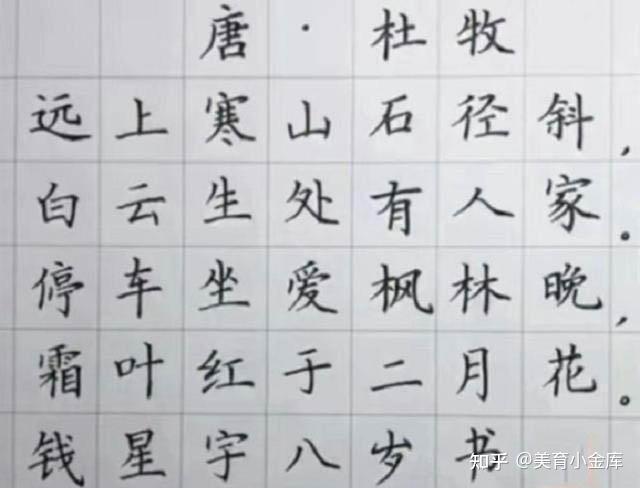 唐·杜牧
远上寒山石径斜，
白云生处有人家。
停车坐爱枫林晚，
霜叶红于二月花。
钱星宇八岁书
知乎 @美育小金库